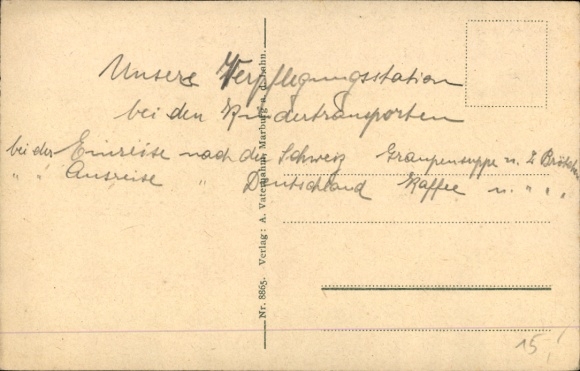 Unsere Verpflegungsstation
bei den Kindertransporten
bei der Einreise nach der Schweiz Graupensuppe u. 2 Brötchen
" " Ausreise " Deutschland Kaffee u. " " "
Nr. 8865. Verlag: A. Vaterhahn, Marburg a. d. Lahn.
15,-